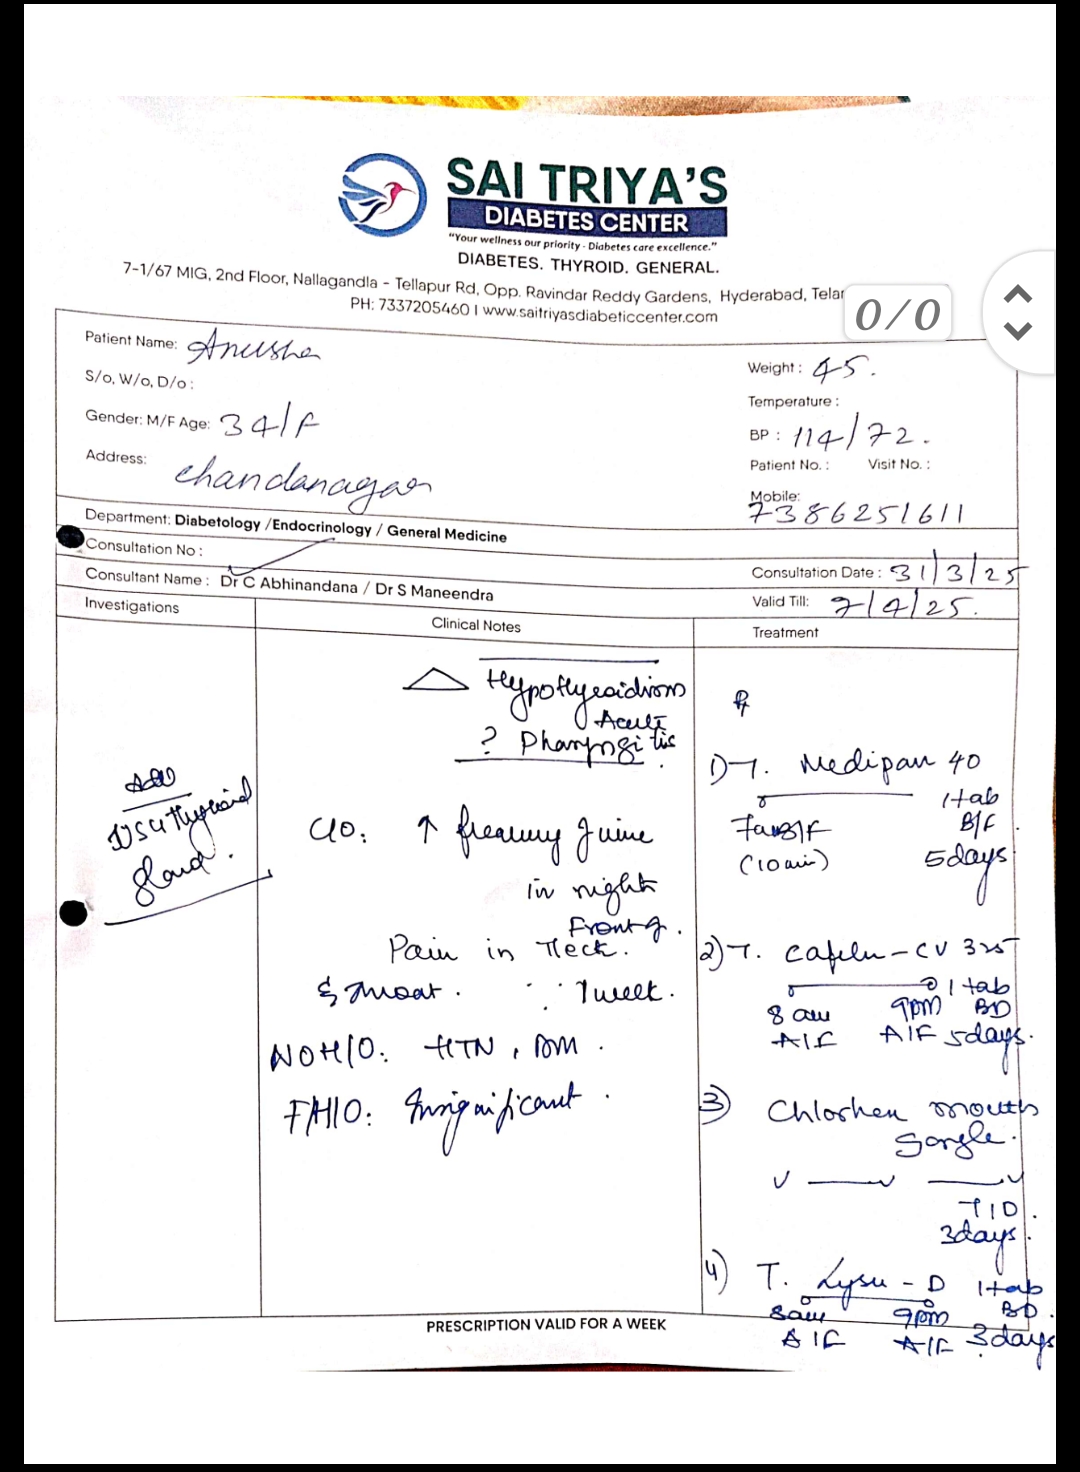 SAI TRIYA'S
DIABETES CENTER
"Your wellness our priority - Diabetes care excellence."
DIABETES. THYROID. GENERAL.
7-1/67 MIG, 2nd Floor, Nallagandla - Tellapur Rd, Opp. Ravindar Reddy Gardens, Hyderabad, Telan
PH: 7337205460 I www.saitriyasdiabeticcenter.com
0/0
Patient Name: Anusha
S/o, W/o, D/o :
Gender: M/F Age: 34/F
Address: chandanagar
Weight : 45.
Temperature :
BP : 114/72.
Patient No. : Visit No. :
Mobile:
7386251611
Department: Diabetology /Endocrinology / General Medicine
Consultation No :
Consultant Name : Dr C Abhinandana / Dr S Maneendra
Consultation Date : 31/3/25
Valid Till: 7/4/25.
Investigations
Adv
USG Thyroid
gland.
Clinical Notes
△ Hypothyroidism
Acute
? Pharyngitis.
C/O: ↑ frequency of urine
in night
Front of.
Pain in Neck.
& Throat. ∵ 1 week.
NOH/O: HTN, DM.
FH/O: Insignificant.
Treatment
℞
1) T. Medipan 40
1 tab
7am B/F B/F
(10 min) 5 days
2) T. -CV 325
1 tab
8 am 9pm BD
A/F A/F 5days.
3) mouth
gargle.
TID.
3days.
4) T. - D 1 tab
8am 9pm BD.
A/F A/F 3days
PRESCRIPTION VALID FOR A WEEK